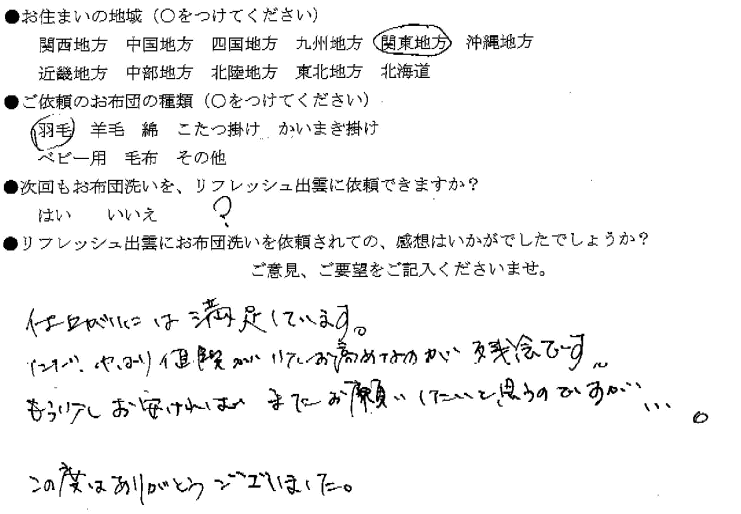 ●お住まいの地域（○をつけてください）
関西地方 中国地方 四国地方 九州地方 関東地方 沖縄地方
近畿地方 中部地方 北陸地方 東北地方 北海道
●ご依頼のお布団の種類（○をつけてください）
羽毛 羊毛 綿 こたつ掛け かいまき掛け
ベビー用 毛布 その他
●次回もお布団洗いを、リフレッシュ出雲に依頼できますか？
はい いいえ ？
●リフレッシュ出雲にお布団洗いを依頼されての、感想はいかがでしたでしょうか？
ご意見、ご要望をご記入くださいませ。
仕上がりには満足しています。
ただ、やはり値段が少しお高めなのが残念です。
もう少しお安ければまたお願いしたいと思うのですが…。
この度はありがとうございました。